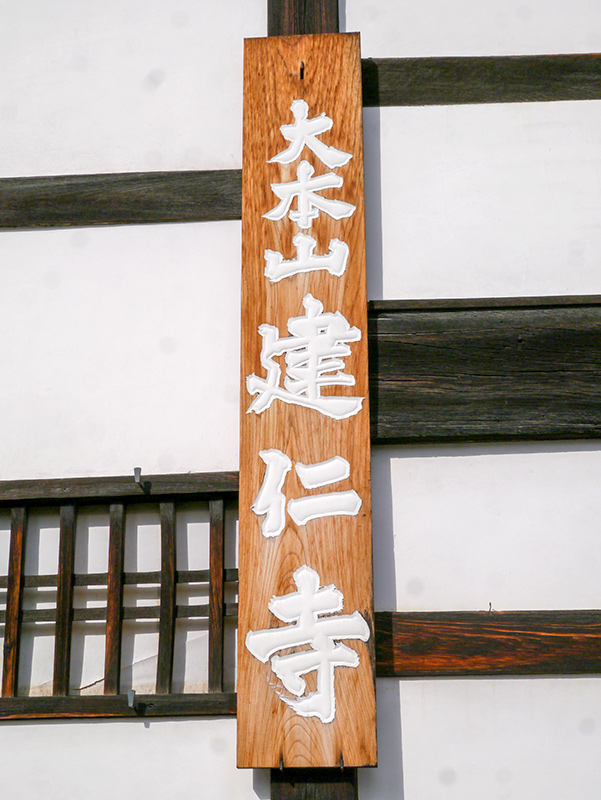 大本山建仁寺